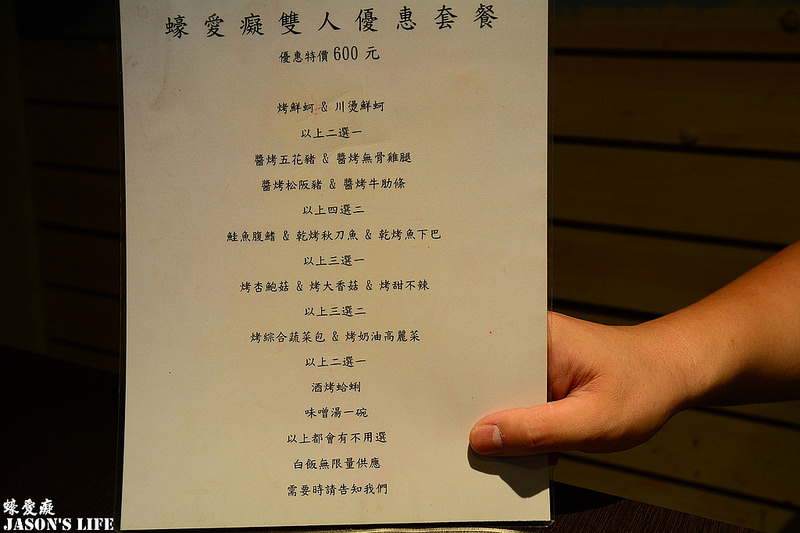 蠔愛癡雙人優惠套餐
優惠特價600元
烤鮮蚵 & 川燙鮮蚵
以上二選一
醬烤五花豬 & 醬烤無骨雞腿
醬烤松阪豬 & 醬烤牛肋條
以上四選二
鮭魚腹鰭 & 乾烤秋刀魚 & 乾烤魚下巴
以上三選一
烤杏鮑菇 & 烤大香菇 & 烤甜不辣
以上三選二
烤綜合蔬菜包 & 烤奶油高麗菜
以上二選一
酒烤蛤蜊
味噌湯一碗
以上都會有不用選
白飯無限量供應
需要時請告知我們
蠔愛癡
JASON'S LIFE